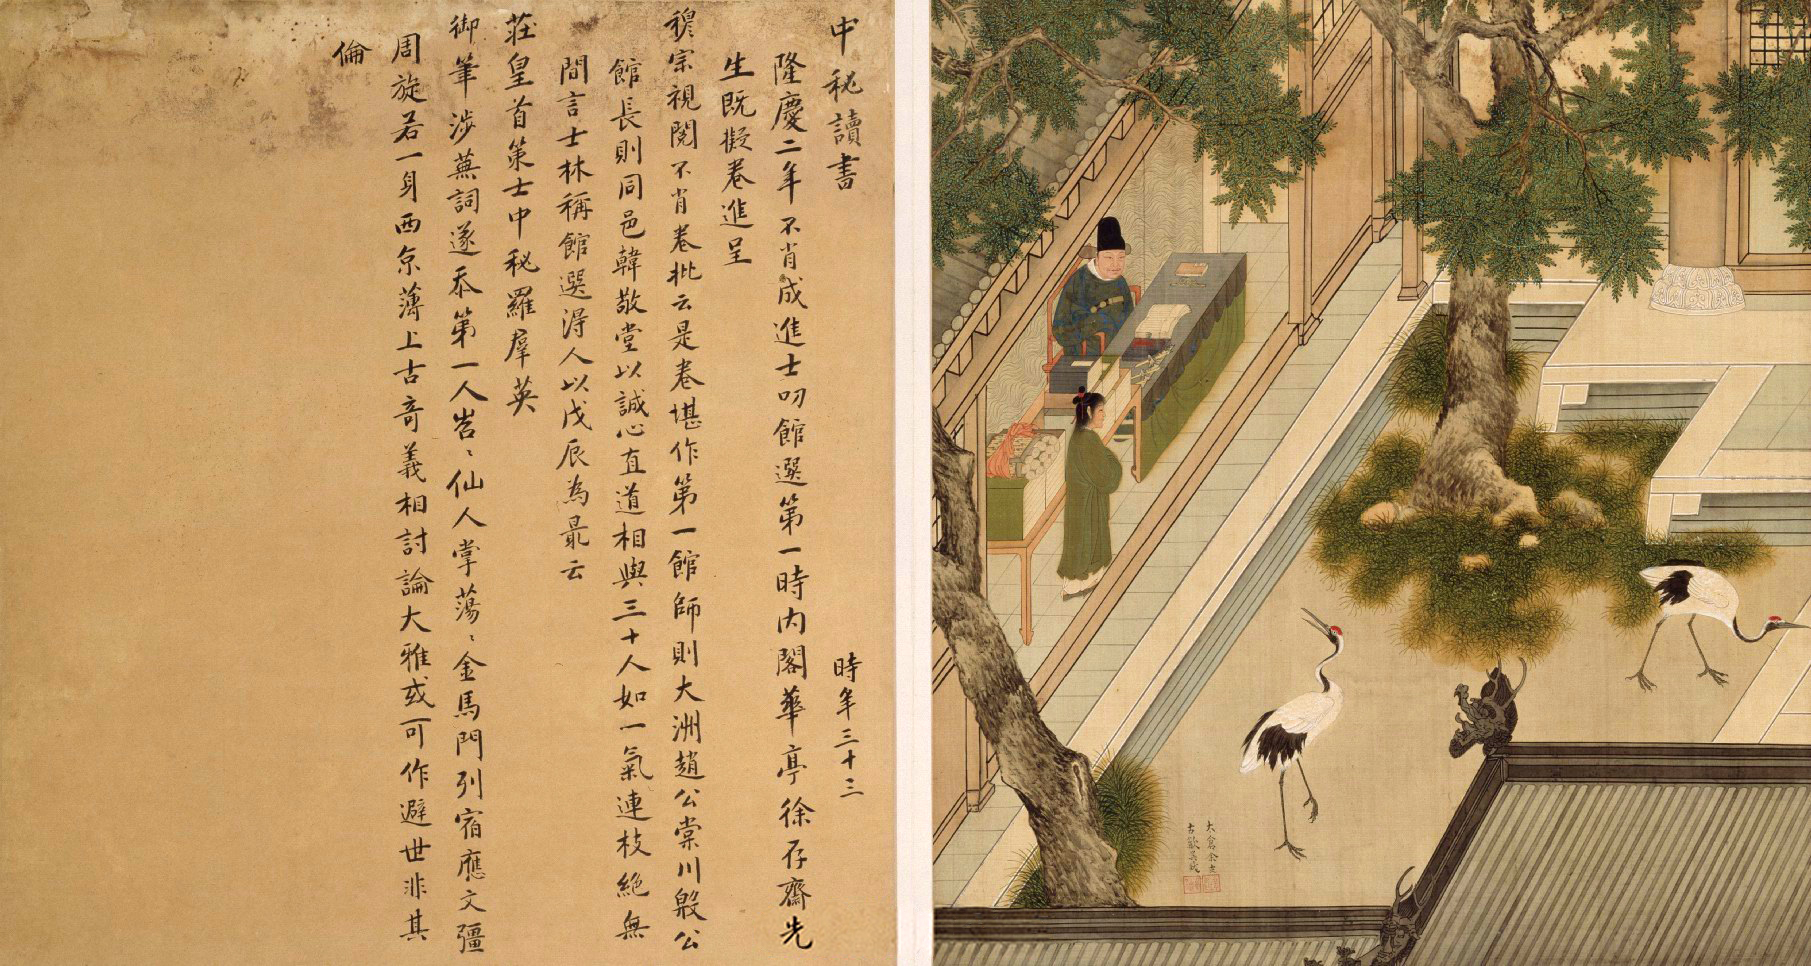 中秘讀書
時年三十三
隆慶二年不肖成進士叨館選第一時内閣華亭徐存齋先
生既擬卷進呈
穆宗視閱不肖卷批云是卷堪作第一館師則大洲趙公棠川殷公
館長則同邑韓敬堂以誠心直道相與三十人如一氣連枝絕無
間言士林稱館選得人以戊辰為最云
莊皇首策士中秘羅羣英
御筆涉蕪詞遂忝第一人岧〻仙人掌蕩〻金馬門列宿應文彊
周旋若一身西京薄上古奇義相討論大雅或可作避世非其
倫
大倉余士
吉猷吳